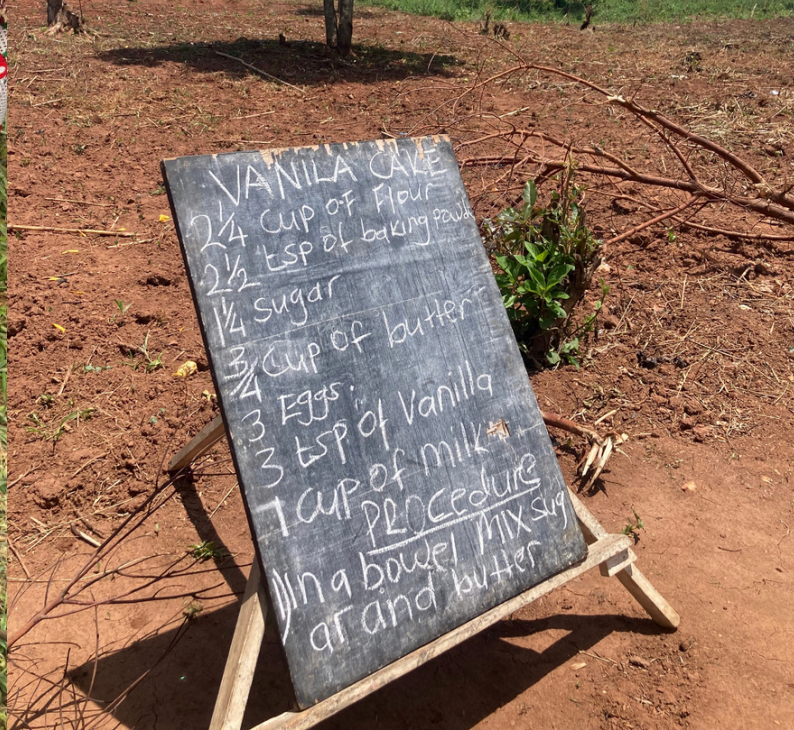 VANILA CAKE
2 1/4 cup of Flour
2 1/2 tsp of baking powd
1 1/4 sugar
3/4 cup of butter
3 Eggs.
3 tsp of Vanilla
1 cup of milk
PROCedure
1) In a bowel MIX sug
ar and butter